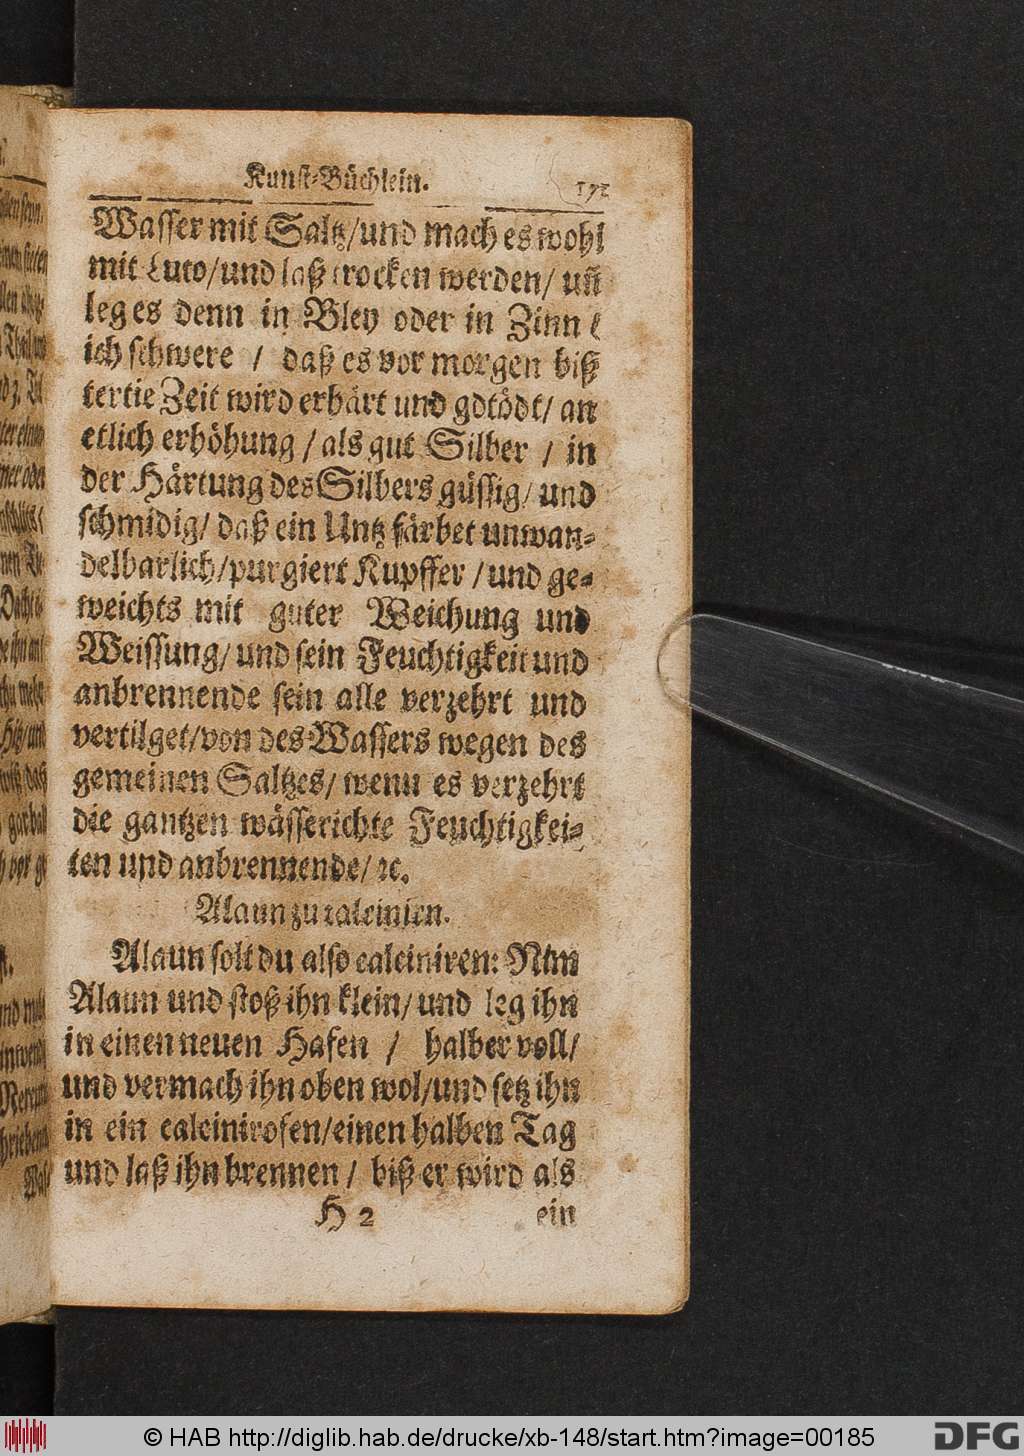 Kunst-Büchlein. 171
Wasser mit Saltz/und mach es wohl
mit Luto/und laß trocken werden/ un̄
leg es denn in Bley oder in Zinn (
ich schwere / daß es vor morgen biß
tertie Zeit wird erhärt und gdtödt/ an
etlich erhöhung / als gut Silber / in
der Härtung des Silbers güssig/ und
schmidig/ daß ein Untz färbet unwan-
delbarlich/purgiert Kupffer /und ge-
weichts mit guter Weichung und
Weissung/ und sein Feuchtigkeit und
anbrennende sein alle verzehrt und
vertilget/von des Wassers wegen des
gemeinen Saltzes/ wenn es verzehrt
die gantzen wässerichte Feuchtigkei-
ten und anbrennende/ ꝛc.
Alaun zu calcinirn.
Alaun solt du also calciniren: Nim
Alaun und stoß ihn klein/ und leg ihn
in einen neuen Hafen / halber voll/
und vermach ihn oben wol/und setz ihn
in ein calcinirofen/einen halben Tag
und laß ihn brennen / biß er wird als
H 2 ein
© HAB http://diglib.hab.de/drucke/xb-148/start.htm?image=00185
DFG